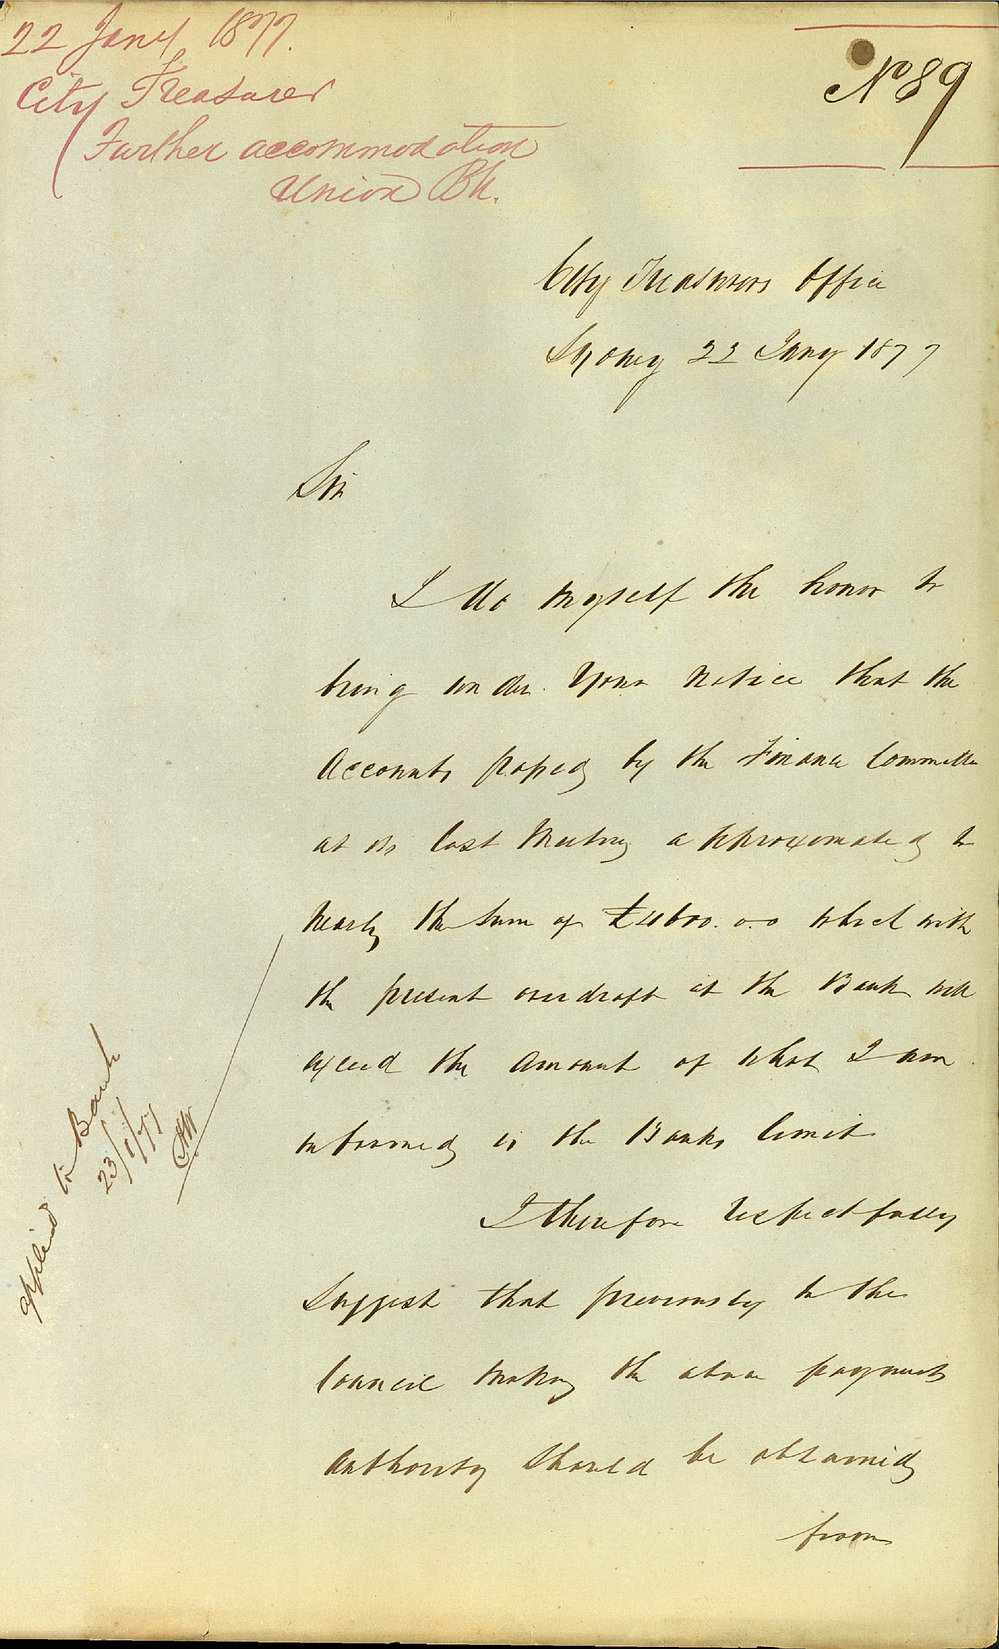 22 Jany 1877.
City Treasurer
Further accommodation
Union Bk.
No 89
City Treasurers Office
Sydney 22 Jany 1877
Sir
I do myself the honor to
bring under Your Notice that the
Accounts passed by the Finance Committee
at its last Meeting approximated to
nearly the sum of £4600.0.0 which with
the present overdraft at the Bank will
exceed the amount of what I am
informed is the Banks limit
I therefore respectfully
suggest that previously to the
Council making the above payments
Authority should be obtained
from
applied to Bank
23/1/77